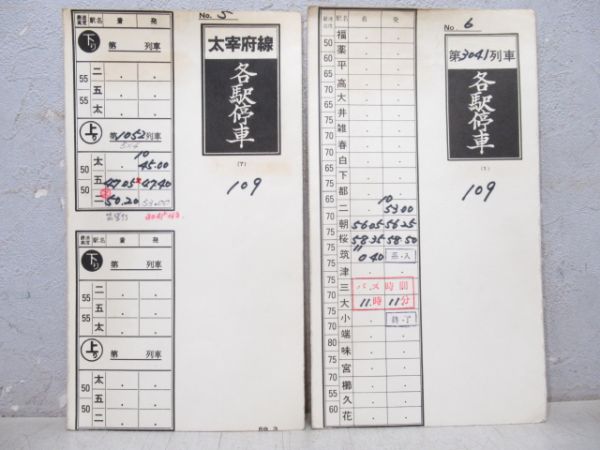 No. 5
経済速度 駅名 着 発
下り 第 列車
二
55
五
55
太
上り 第1052列車
太 10 45.00
50
五 47.05 47.40
50
二 50.20 53.00
太宰府線
各駅停車
(7)
109
経済速度 駅名 着 発
下り 第 列車
二
55
五
55
太
上り 第 列車
太
50
五
50
二
No. 6
経済速度 駅名 着 発
福
50
薬
60
平
70
高
70
大
65
井
70
雑
65
春
65
白
70
下
70
都
65
二 10 53.00
65
朝 56.05 56.25
70
桜 58.35 58.50
75
筑 11 0.40
75
津
70
三 バス時間
75
大 11時 11分
70
小
75
端
70
味
75
宮
70
櫛
70
久
60
花
第3041列車
各駅停車
(1)
109